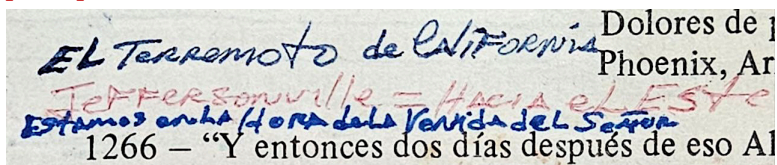 Dolores de
EL TERREMOTO de CALIFORNIA
Phoenix, Ar
JeFFERSonville = HACIA eL ESTe
Estamos en LA HORA de la Venida deL SeñoR
1266 – “Y entonces dos días después de eso Al